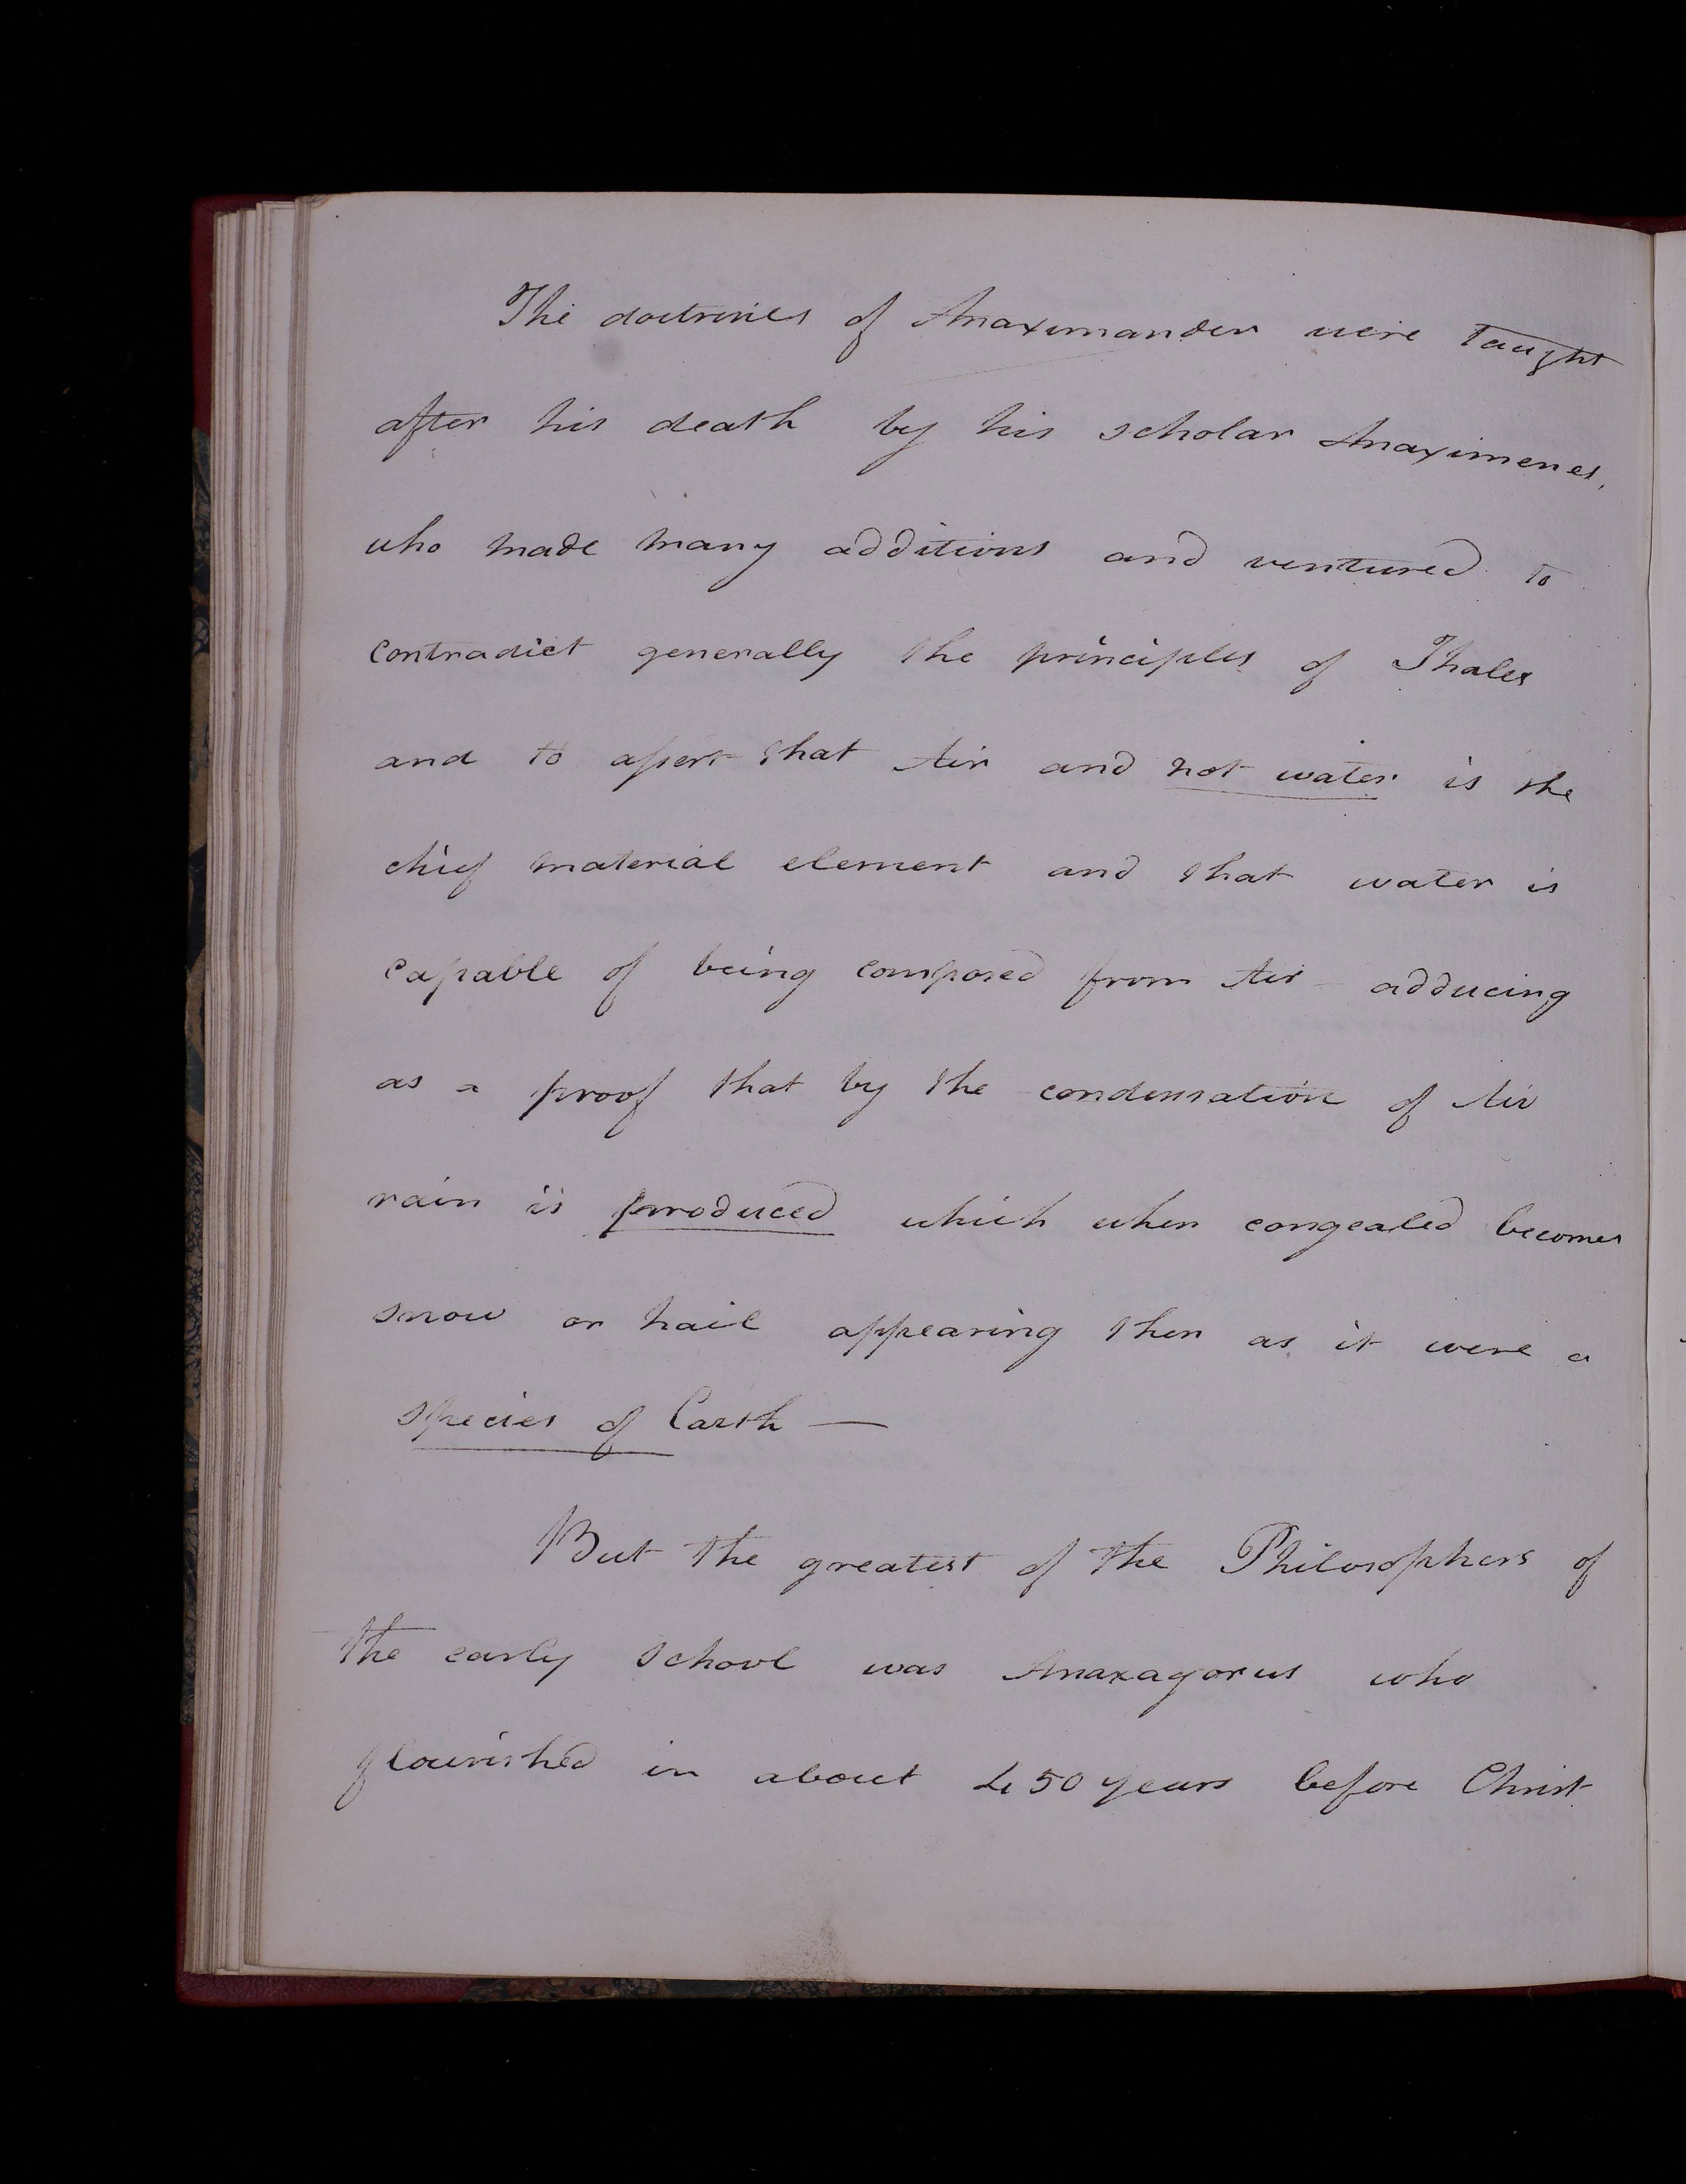 The doctrines of Anaximander were taught
after his death by his scholar Anaximenes,
who made many additions and ventured to
contradict generally the principles of Thales
and to assert that Air and not water is the
chief material element and that water is
capable of being composed from Air - adducing
as a proof that by the condensation of Air
rain is produced which when congealed becomes
snow or hail appearing then as it were a
species of Earth —
But the greatest of the Philosophers of
the early school was Anaxagorus who
flourished in about 450 years before Christ